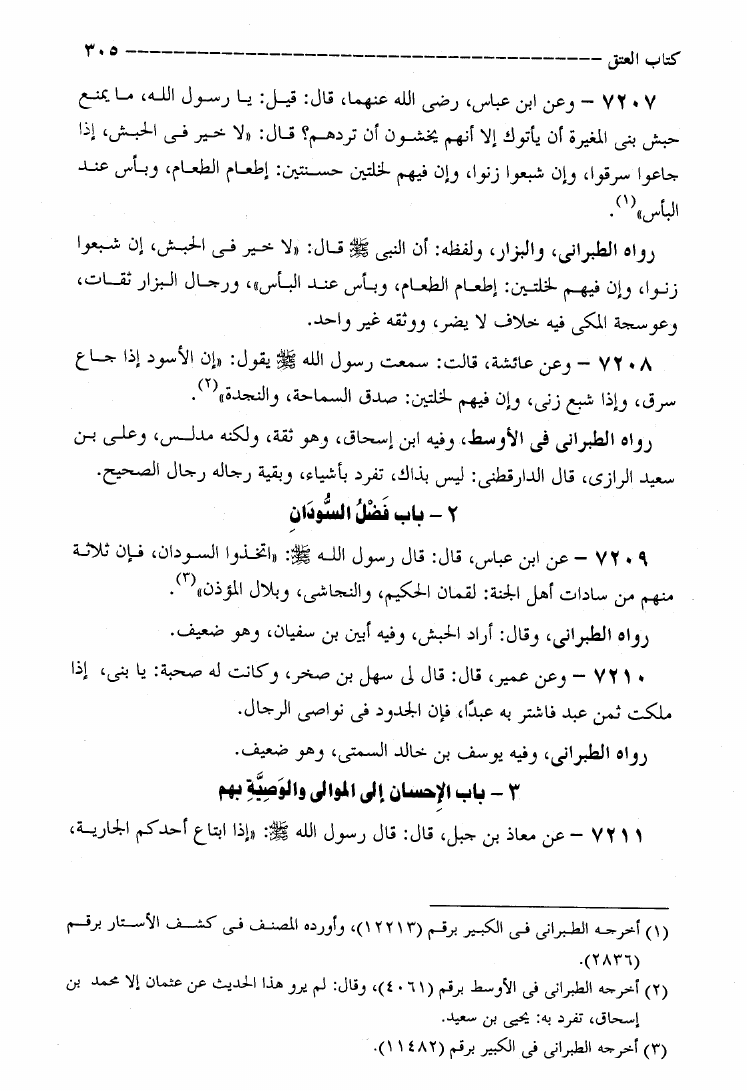 كتاب العتق ---------------------------------------- ٣٠٥
٧٢٠٧ – وعن ابن عباس، رضى الله عنهما، قال: قيل: يا رسول الله، ما يمنع
حبش بنى المغيرة أن يأتوك إلا أنهم يخشون أن تردهم؟ قال: «لا خير فى الحبش، إذا
جاعوا سرقوا، وإن شبعوا زنوا، وإن فيهم لخلتين حسنتين: إطعام الطعام، وبأس عند
البأس»(١).
رواه الطبرانى، والبزار، ولفظه: أن النبى ﷺ قال: «لا خير فى الحبش، إن شبعوا
زنوا، وإن فيهم لخلتين: إطعام الطعام، وبأس عند البأس»، ورجال البزار ثقات،
وعوسجة المكى فيه خلاف لا يضر، ووثقه غير واحد.
٧٢٠٨ – وعن عائشة، قالت: سمعت رسول الله ﷺ يقول: «إن الأسود إذا جاع
سرق، وإذا شبع زنى، وإن فيهم لخلتين: صدق السماحة، والنجدة»(٢).
رواه الطبرانى فى الأوسط، وفيه ابن إسحاق، وهو ثقة، ولكنه مدلس، وعلى بن
سعيد الرازى، قال الدارقطنى: ليس بذاك، تفرد بأشياء، وبقية رجاله رجال الصحيح.
٢ – باب فَضْلُ السُّودَانِ
٧٢٠٩ – عن ابن عباس، قال: قال رسول الله ﷺ: «اتخذوا السودان، فإن ثلاثة
منهم من سادات أهل الجنة: لقمان الحكيم، والنجاشى، وبلال المؤذن»(٣).
رواه الطبرانى، وقال: أراد الحبش، وفيه أبين بن سفيان، وهو ضعيف.
٧٢١٠ – وعن عمير، قال: قال لى سهل بن صخر، وكانت له صحبة: يا بنى، إذا
ملكت ثمن عبد فاشتر به عبدًا، فإن الجدود فى نواصى الرجال.
رواه الطبرانى، وفيه يوسف بن خالد السمتى، وهو ضعيف.
٣ – باب الإِحسان إلى الموالى والوَصِيَّةِ بهم
٧٢١١ – عن معاذ بن جبل، قال: قال رسول الله ﷺ: «إذا ابتاع أحدكم الجارية،
(١) أخرجه الطبرانى فى الكبير برقم (١٢٢١٣)، وأورده المصنف فى كشف الأستار برقم
(٢٨٣٦).
(٢) أخرجه الطبرانى فى الأوسط برقم (٤٠٦١)، وقال: لم يرو هذا الحديث عن عثمان إلا محمد بن
إسحاق، تفرد به: يحيى بن سعيد.
(٣) أخرجه الطبرانى فى الكبير برقم (١١٤٨٢).